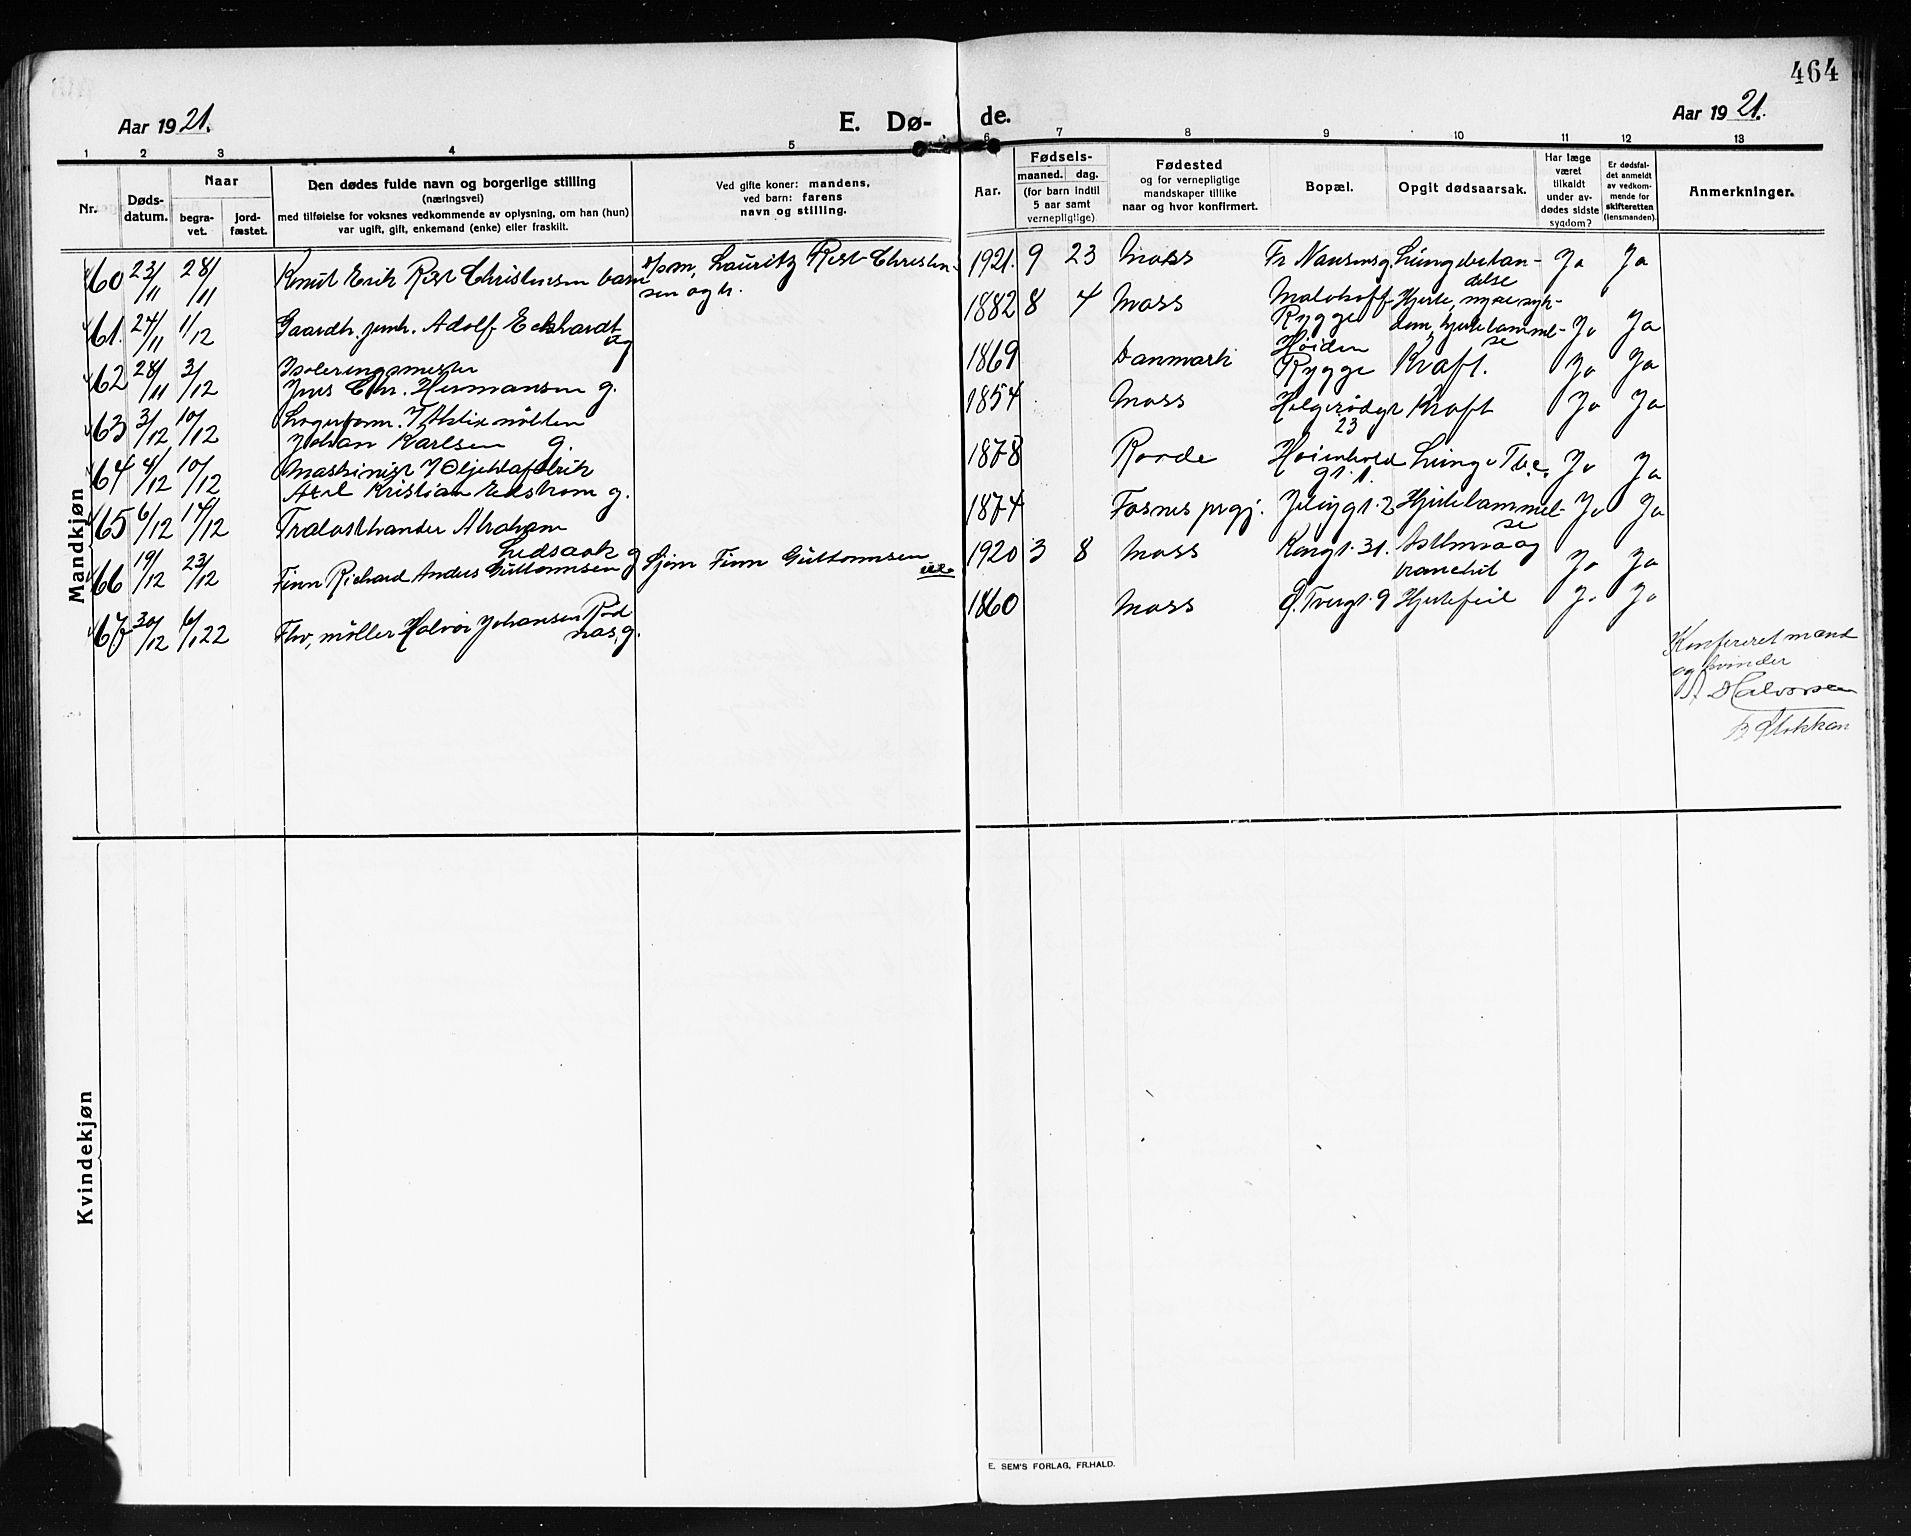 464
Aar 1921.
E. Dø-
de.
Aar 1921.
1 2 3 4 5 6 7 8 9 10 11 12 13
Nr.
Døds-
datum.
Naar
begra-
vet.
jord-
fæstet.
Den dødes fulde navn og borgerlige stilling
(næringsvei)
med tilføielse for voksnes vedkommende av oplysning, om han (hun)
var ugift, gift, enkemand (enke) eller fraskilt.
Ved gifte koner: mandens,
ved barn: farens
navn og stilling.
Aar.
Fødsels-
maaned. dag.
(for barn indtil
5 aar samt
vernepligtige)
Fødested
og for vernepligtige
mandskaper tillike
naar og hvor konfirmert.
Bopæl.
Opgit dødsaarsak.
Har læge
været
tilkaldt
under av-
dødes sidste
sygdom?
Er dødsfal-
det anmeldt
av vedkom-
mende for
skifteretten
(lensmanden).
Anmerkninger.
Mandkjøn
60 23/11 28/11 Knut Erik Rist Christensen barn
Lauritz Rist Christen-
sen og h.
1921. 9 23 Moss Fr Nansensg. Lungebetæn-
delse Ja Ja
61. 24/11 1/12 Gaardb. Adolf Eckhardt
ug
1882 8 4 Moss Malakoff
Rygge Hjerte, nyresyk-
dom, hjertelammel-
se Ja Ja
62 28/11 3/12 Isoleringsmester
Jens Chr. Hermansen g.
1869 Danmark Høiden
Rygge Kræft. Ja Ja
63 3/12 10/12
Johan Karlsen g.
1854 Moss Helgerødgt
23 Kræft Ja Ja
64 4/12 10/12 Maskinist
Axel Kristian Edstrøm g.
1878 Raade
gt. 1. Lunge Tbc. Ja Ja
65 6/12 14/12 Trælasthandler Abraham
g
1874 Fosnes prgj. Jeløygt. 2 Hjertelammel-
se Ja Ja
66 19/12 23/12 Finn Richard Anders Guttormsen
Sjøm Finn Guttormsen
1920 3 8 Moss Kongt. 31. Asthma og
bronchit Ja Ja
67 30/12 6/1 22 Fhv. møller Halvor Johansen Rød
næs, g.
1860 Moss Ø. Tvergt. 9 Hjertefeil Ja Ja
Konfereret mand
og kvinder
A Halvorsen
B Stokkan
Kvindekjøn
E. SEM'S FORLAG, FR.HALD.